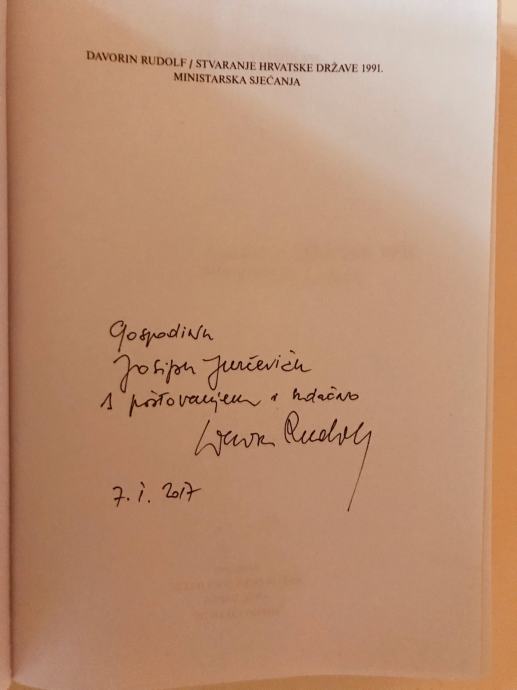 DAVORIN RUDOLF / STVARANJE HRVATSKE DRŽAVE 1991.
MINISTARSKA SJEĆANJA
Gospodinu
Josipu Jurčeviću
s poštovanjem i srdačno
Davorin Rudolf
7. I. 2017